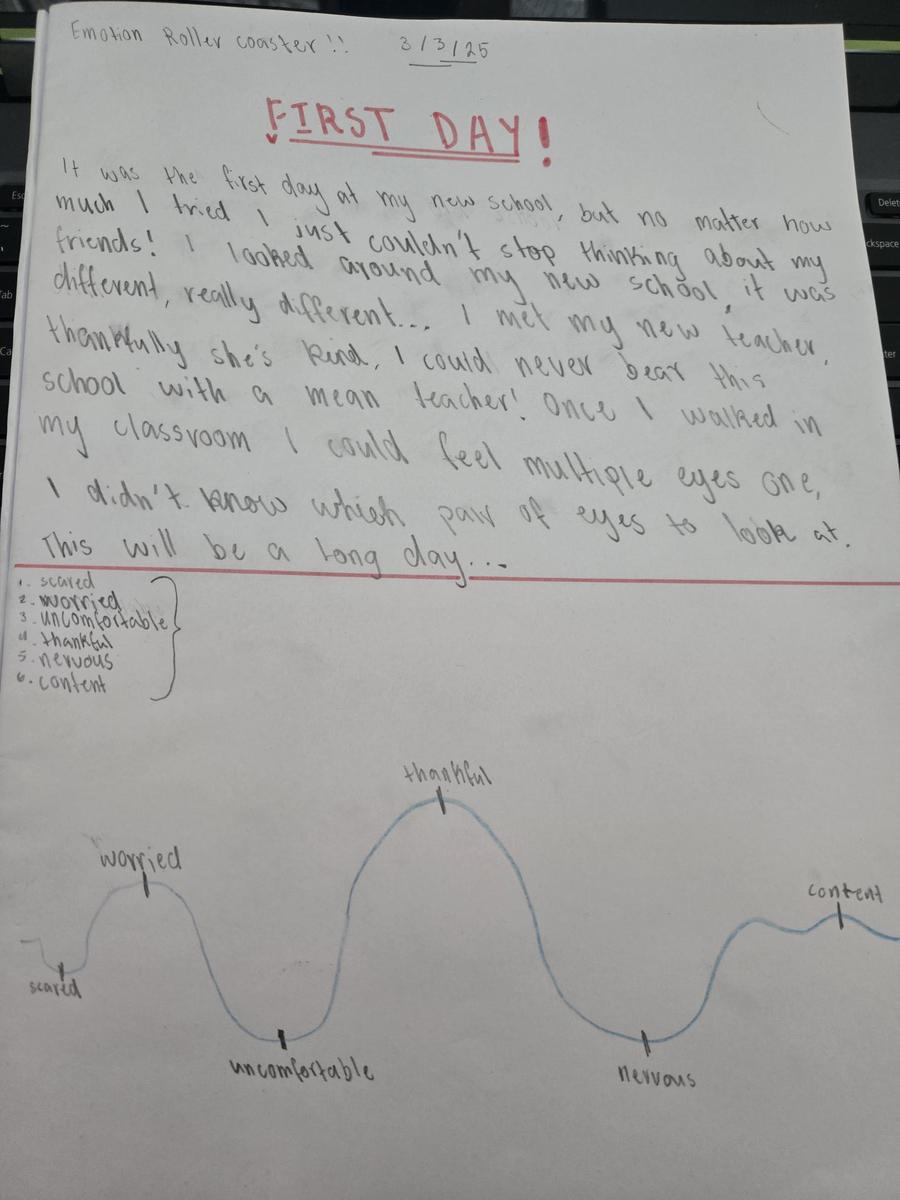 Emotion Roller coaster!! 3/3/25
FIRST DAY!
It was the first day at my new school, but no matter how
much I tried I just couldn't stop thinking about my
friends! I looked around my new school, it was
different, really different... I met my new teacher,
thankfully she's kind, I could never bear this
school with a mean teacher! Once I walked in
my classroom I could feel multiple eyes one,
I didn't know which pair of eyes to look at.
This will be a long day...
1. scared
2. worried
3. uncomfortable
4. thankful
5. nervous
6. content
thankful
worried
content
scared
uncomfortable
nervous
Esc
Tab
Delet
ckspace